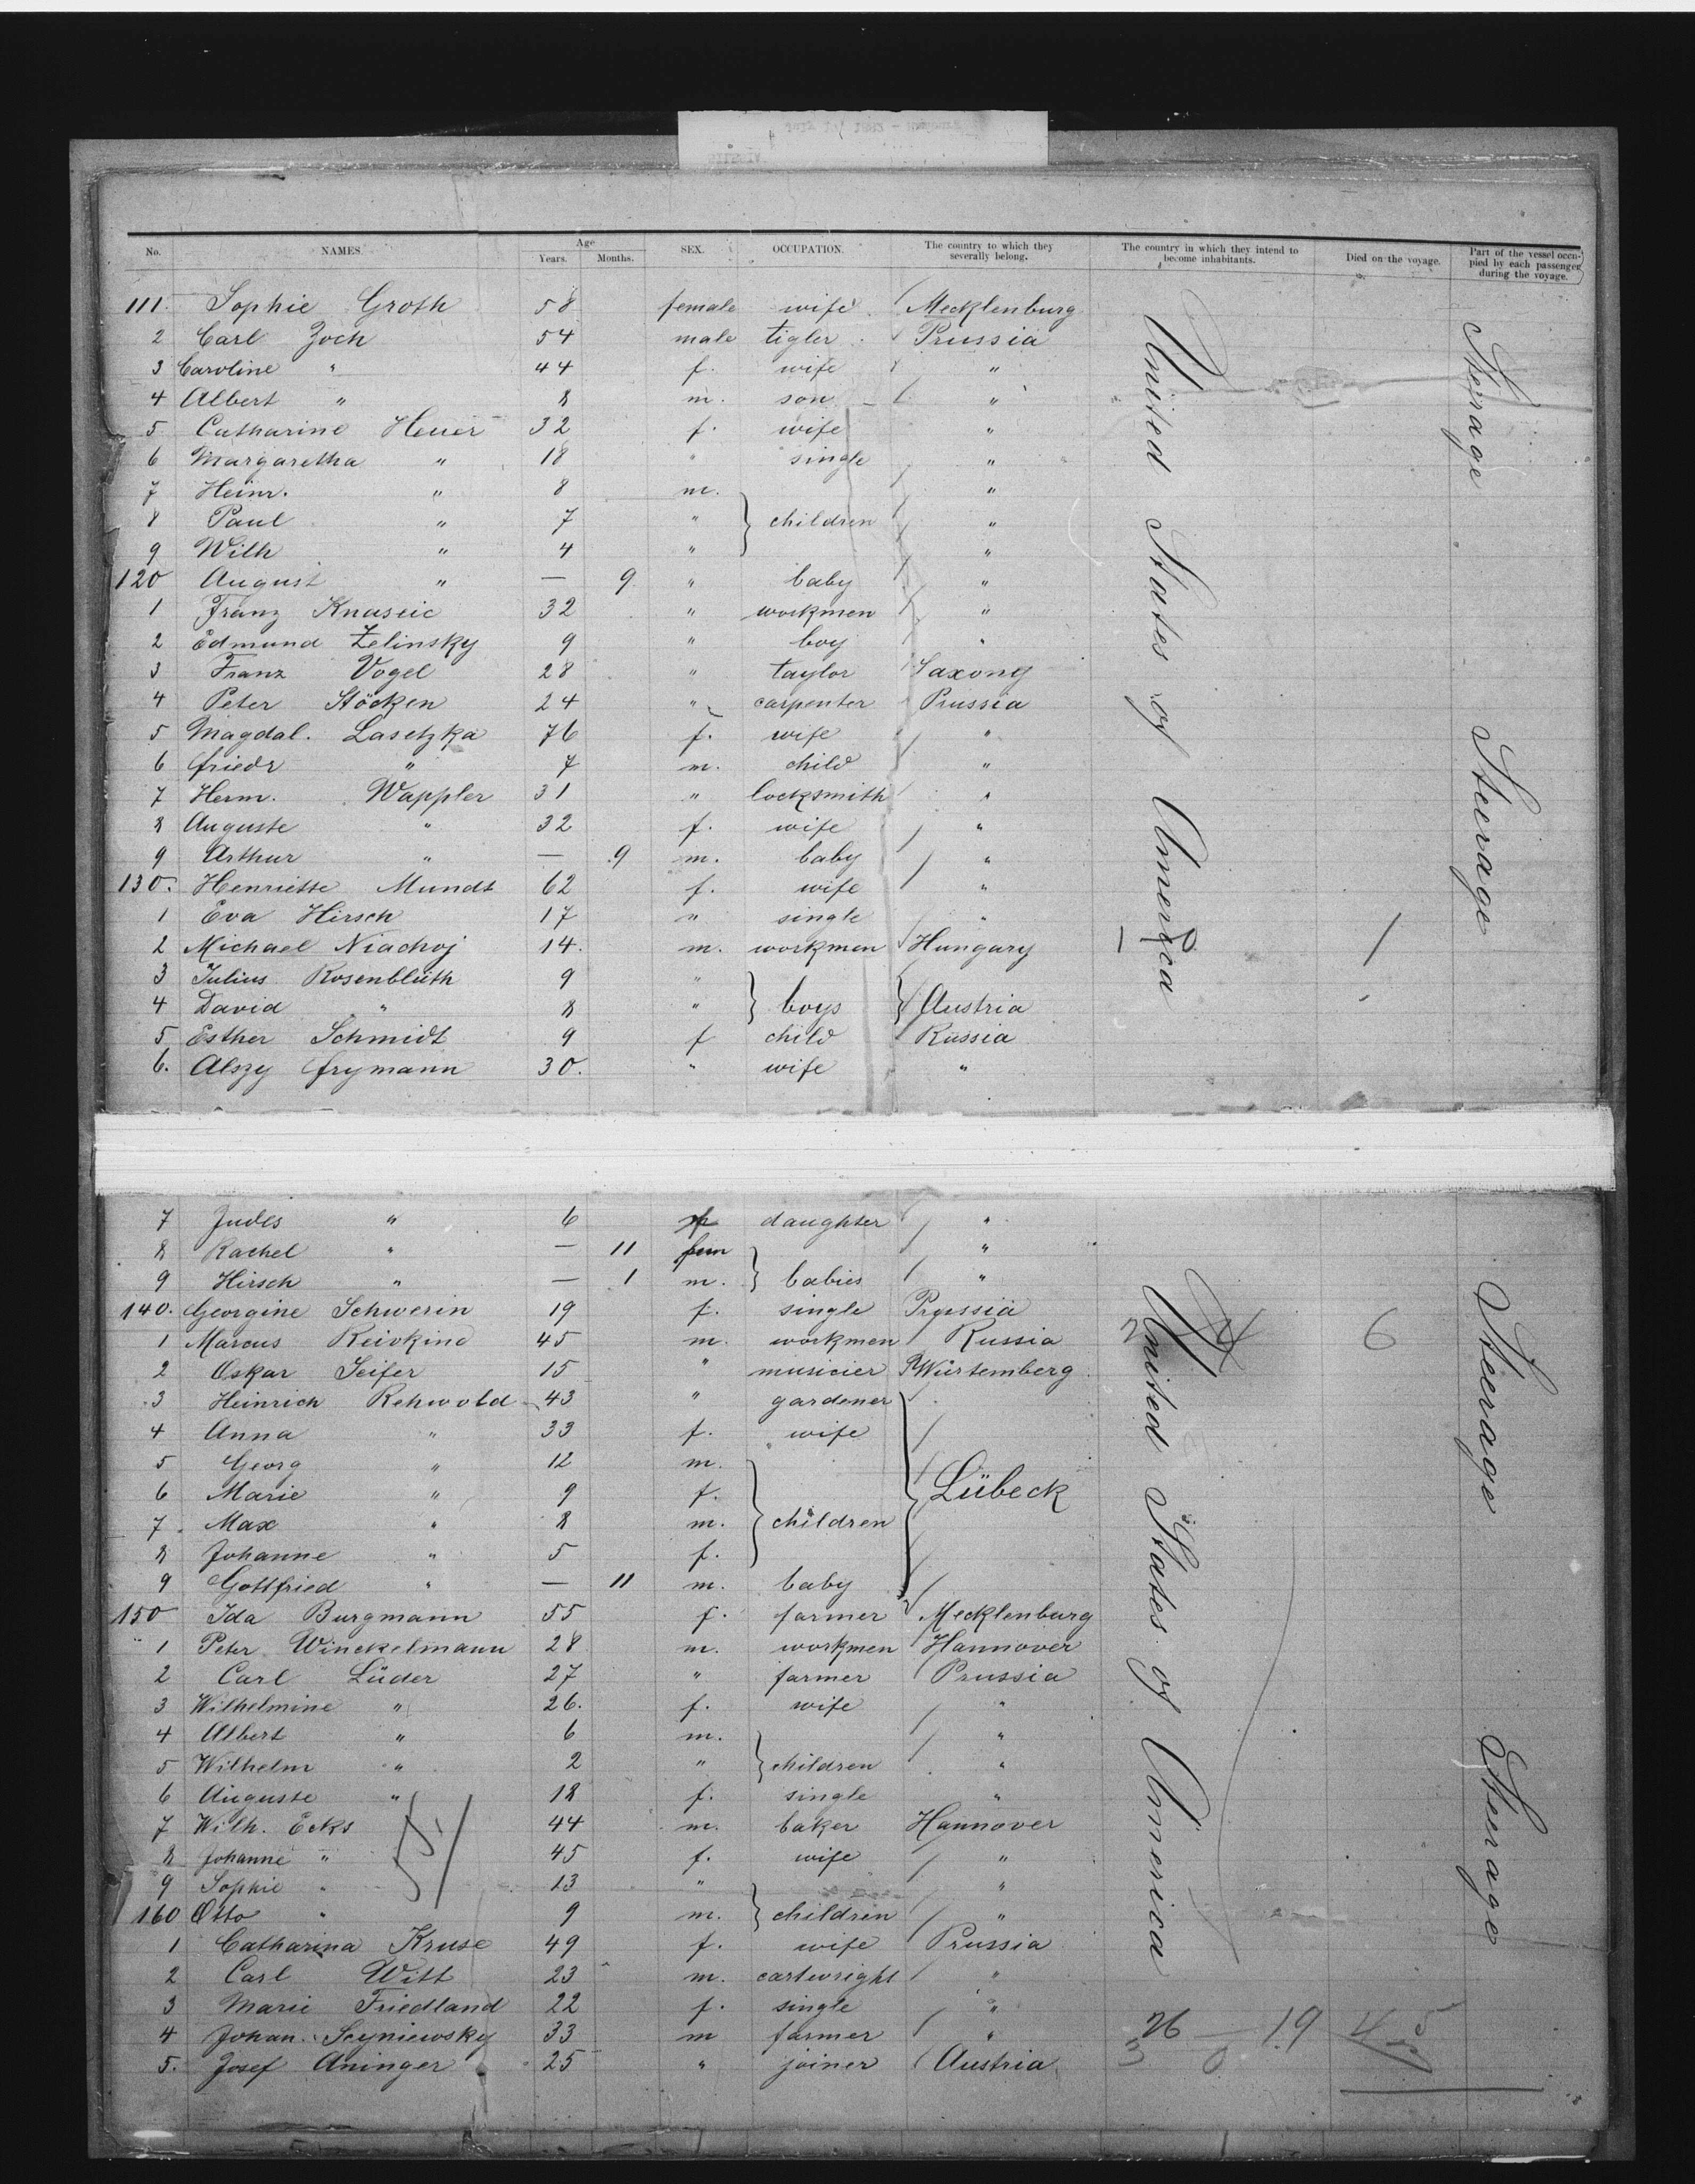 No. NAMES. Age Years. Months. SEX. OCCUPATION. The country to which they severally belong. The country in which they intend to become inhabitants. Died on the voyage. Part of the vessel occupied by each passenger during the voyage.
111. Sophie Groth 58 female wife Mecklenburg
2 Carl Zoch 54 male tigler Prussia
3 Caroline " 44 f. wife "
4 Albert " 8 m. son "
5 Catharine Heuer 32 f. wife "
6 Margaretha " 18 " single "
7 Heinr. " 8 m. "
8 Paul " 7 " children "
9 Wilh " 4 " "
120 August " — 9 " baby "
1 Franz Knaseic 32 " workmen "
2 Edmund Zelinsky 9 " boy "
3 Franz Vogel 28 " taylor Saxony
4 Peter Stöcken 24 " carpenter Prussia
5 Magdal. Lasetzka 76 f. wife "
6 Friedr " 7 m. child "
7 Herm. Wappler 31 " locksmith "
8 Auguste " 32 f. wife "
9 Arthur " — 9 m. baby "
130. Henriette Mundt 62 f. wife "
1 Eva Hirsch 17 " single "
2 Michael Niachoj 14. m. workmen Hungary
3 Julius Rosenblüth 9 "
4 David " 8 " boys Austria
5 Esther Schmidt 9 f child Russia
6. Alszy Frymann 30. " wife "
United States of America
Steerage
Steerage
7 Judes " 6 f daughter "
8 Rachel " — 11 fem "
9 Hirsch " — 1 m. babies "
140. Georgine Schwerin 19 f. single Prussia
1 Marcus Reivkind 45 m. workmen Russia 6
2 Oskar Seifer 15 " musicier Würtemberg
3 Heinrich Rehwold 43 " gardener
4 Anna " 33 f. wife
5 Georg " 12 m.
6 Marie " 9 f. Lübeck
7 Max " 8 m. children
8 Johanne " 5 f.
9 Gottfried " — 11 m. baby
150 Ida Burgmann 55 f. farmer Mecklenburg
1 Peter Winckelmann 28 m. workmen Hannover
2 Carl Lüder 27 " farmer Prussia
3 Wilhelmine " 26. f. wife "
4 Albert " 6 m. "
5 Wilhelm " 2 " children "
6 Auguste " 18 f. single "
7 Wilh. Ecks 44 m. baker Hannover
8 Johanne " 45 f. wife "
9 Sophie " 13 " "
160 Otto " 9 m. children "
1 Catharina Kruse 49 f. wife Prussia
2 Carl Witt 23 m. cartwright "
3 Marie Friedland 22 f. single "
4 Johan. Scyniewsky 33 m farmer " 26 — 19
5. Josef Aninger 25 " joiner Austria
United States of America
Steerage
Steerage